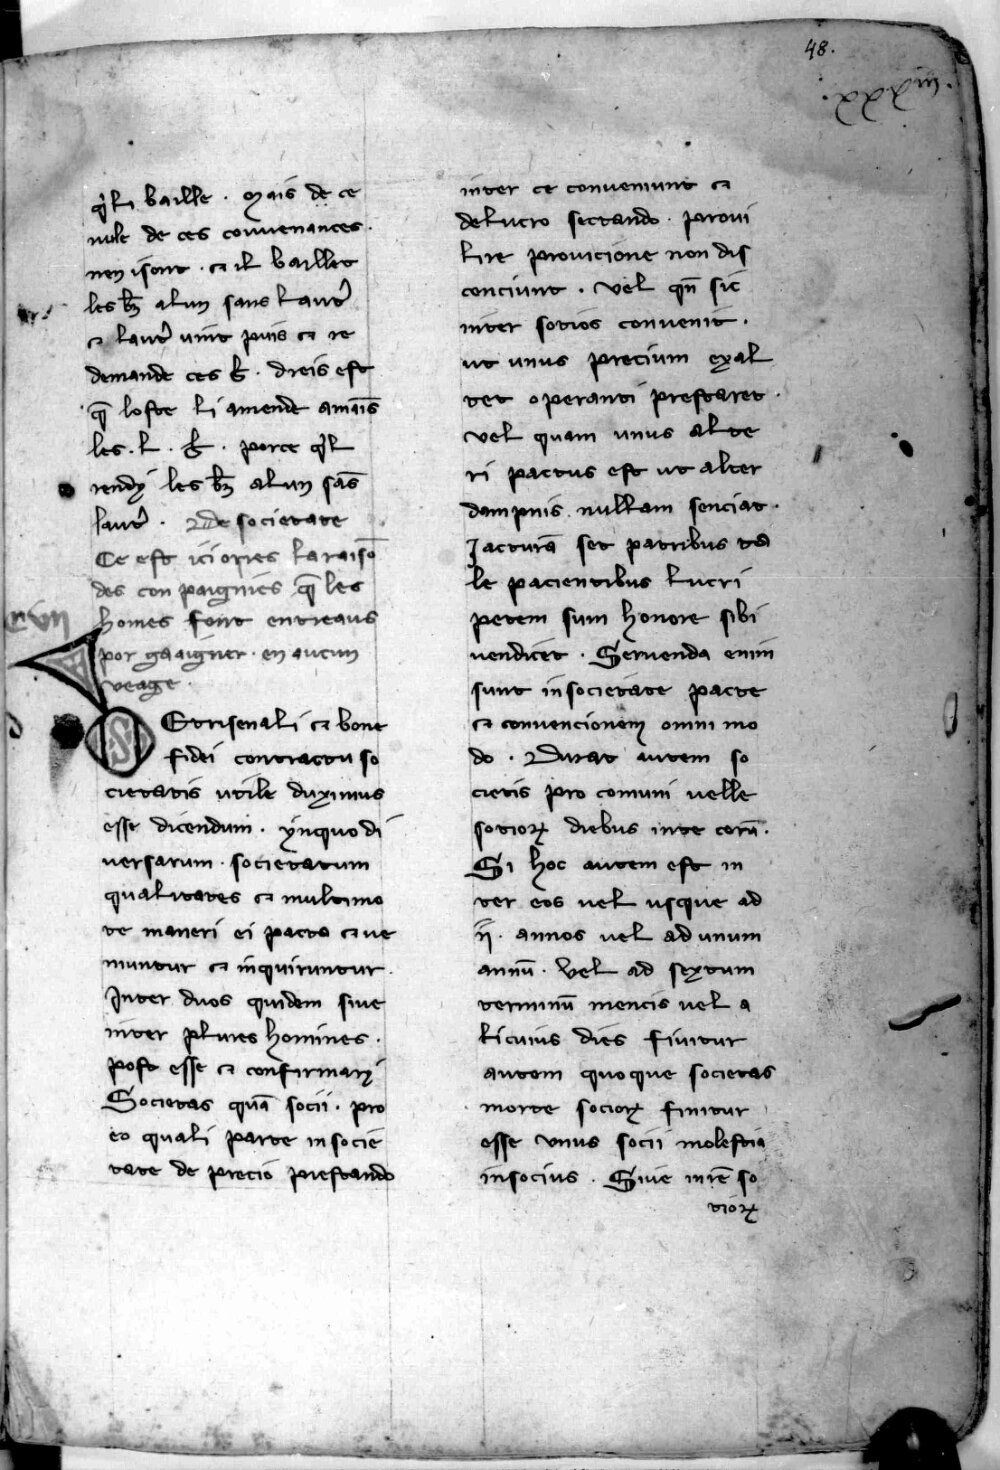 48.
.xxxiiii.
q̾l li baille . Mais de ce
nule de ces convenances .
nen isont . ⁊ il baillet
les bz̄ alun sans lautr̾
⁊ lautr̾ vint puis ⁊ re
demande ces . dreis est
q̄ loste li amende amais
les . l . porce q̾l
rendy les bz̄ alun sās
lautr̾ . De societate
Ce est ici orres la raisō
des conpaignies q̄ les
homes font entreaus
por gaaigner . en aucun
veage .
cvii
S Etrisenali ⁊ bone
fidei contractu so
cietatis utile duximus
esse dicendum . ynquo di
versarum . societatum
qualitates ⁊ multimo
de maneri ei pacta ⁊ ve
niuntur ⁊ inquiruntur .
Inter duos quidem sive
inter plures homines .
post esse ⁊ confirmari
Societas quā socii . pro
eo quali parte in socie
tate de precio prestando
inter ce conveniunt ⁊
delucro sectando . parovi
lire provicione non dis
conciunt . vel qn̄ sic
inter sotios convenit .
ut unus precium exal
tet operanti prestaret .
vel quam unus alte
ri pactus est ut alter
dampnis nullam senciat .
Jacturā set patribus ta
le pacientibus lucri
petem sum honore sibi
vendicet . Servenda enim
sunt insocietate pacte
⁊ convencionem omni mo
do . Durat autem so
cietis pro comuni velle
sotioꝝ diebus inte cerā .
Si hoc autem est in
ter eos vel usque ad
ii . annos vel ad unum
annū . vel ad sextum
terminū mencis vel a
licuius dies finitur
autem quoque societas
morte socioꝝ finitur
esse unus socii molestia
insocius . Sive inrē so
tioꝝ